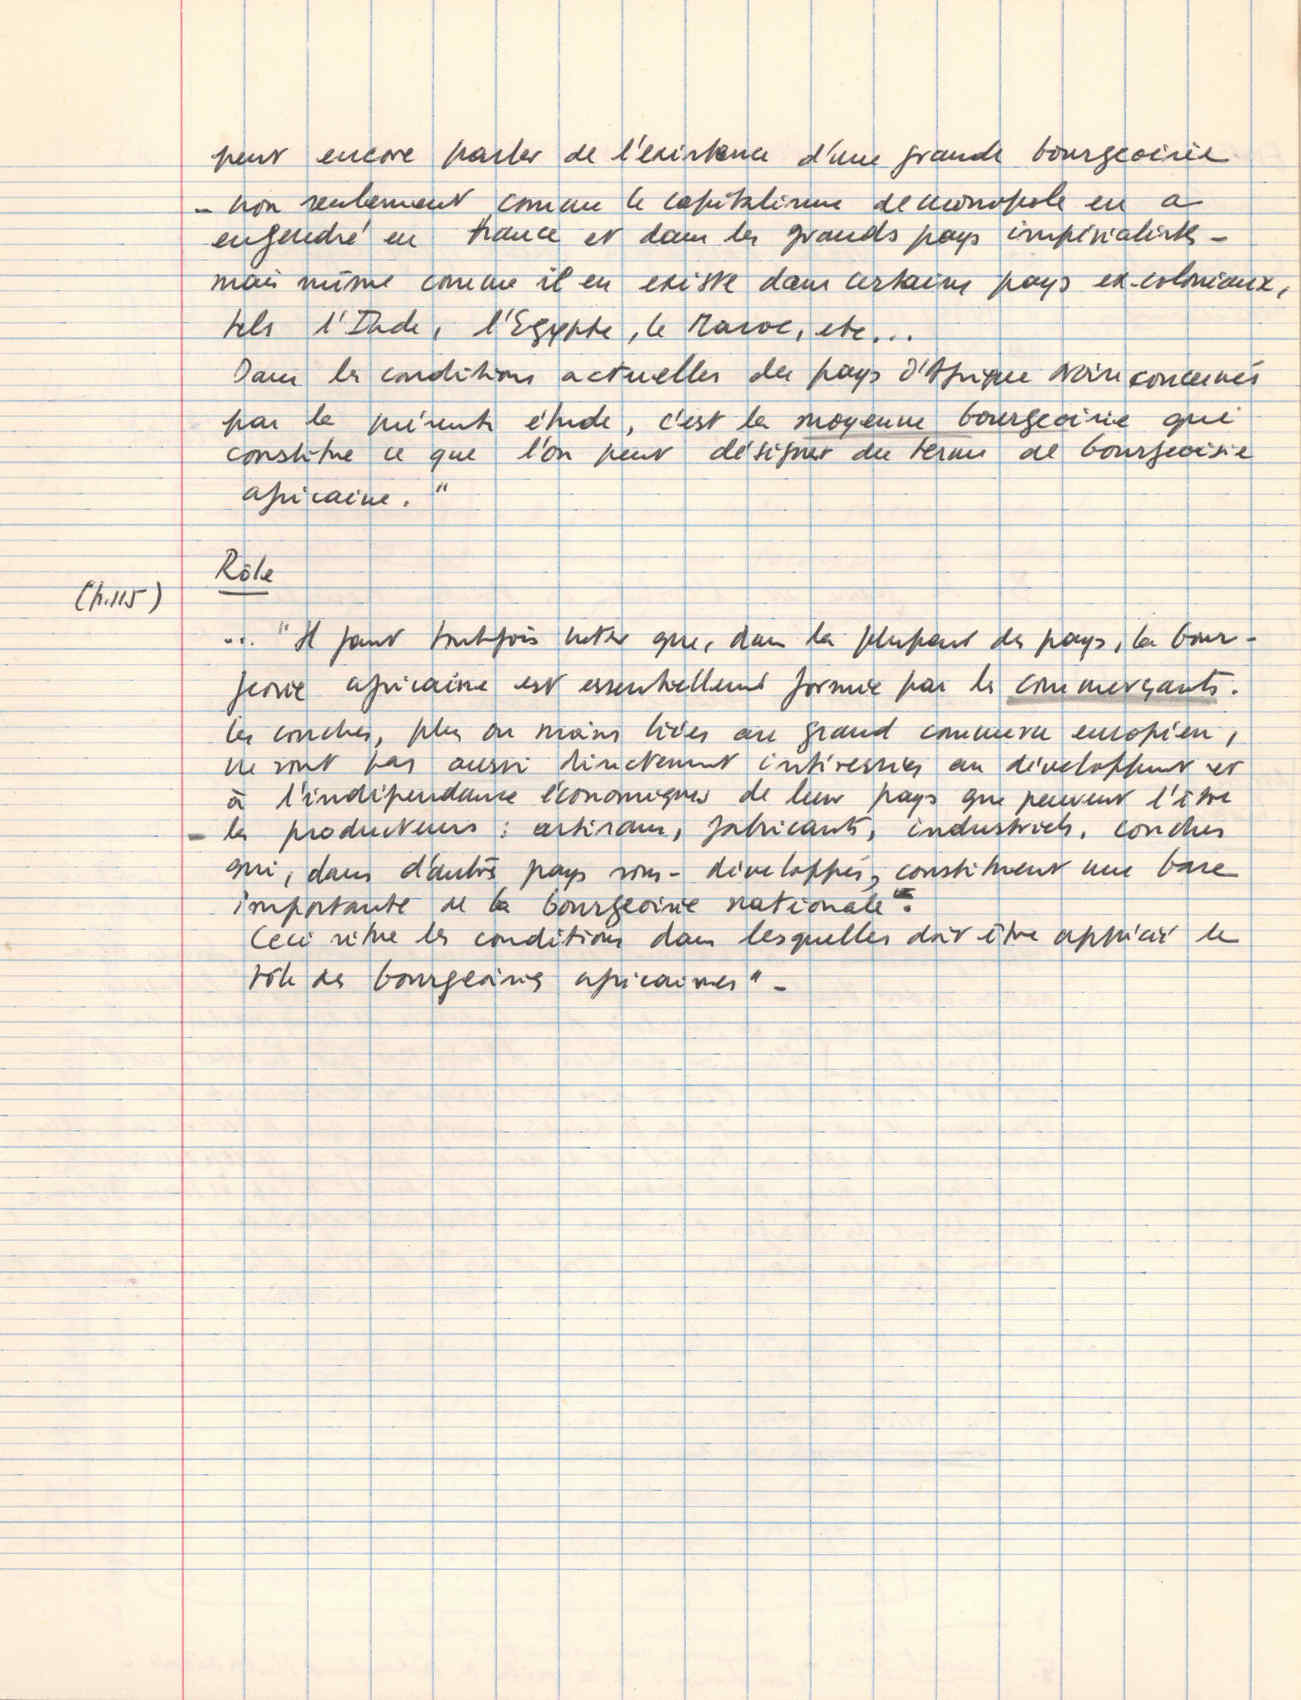 peut encore parler de l'existence d'une grande bourgeoisie
- non seulement comme le capitalisme de monopole en a
engendré en France et dans les grands pays impérialistes -
mais même comme il en existe dans certains pays ex-coloniaux,
tels l'Inde, l'Egypte, le Maroc, etc...
Dans les conditions actuelles des pays d'Afrique noire concernés
par la présente étude, c'est la moyenne bourgeoisie qui
constitue ce que l'on peut désigner du terme de bourgeoisie
africaine. "
Rôle
(p.115)
... "Il faut toutefois noter que, dans la plupart des pays, la bour-
geoisie africaine est essentiellement formée par les commerçants.
Ces couches, plus ou moins liées au grand commerce européen,
ne sont pas aussi directement intéressées au développent et
à l'indépendance économiques de leur pays que peuvent l'être
- les producteurs : artisans, fabricants, industriels, couches
qui, dans d'autres pays sous-développés, constituent une base
importante de la bourgeoisie nationale".
Ceci situe les conditions dans lesquelles doit être apprécié le
rôle des bourgeoisies africaines" -